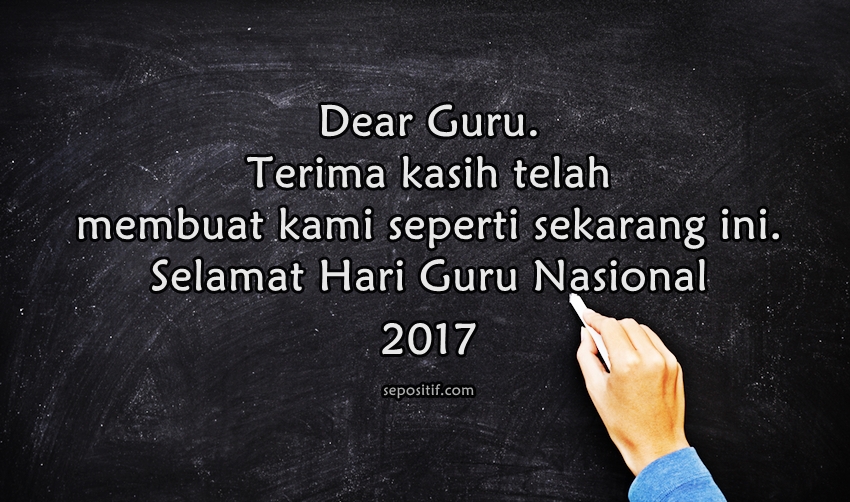 Dear Guru.
Terima kasih telah
membuat kami seperti sekarang ini.
Selamat Hari Guru Nasional
2017
sepositif.com